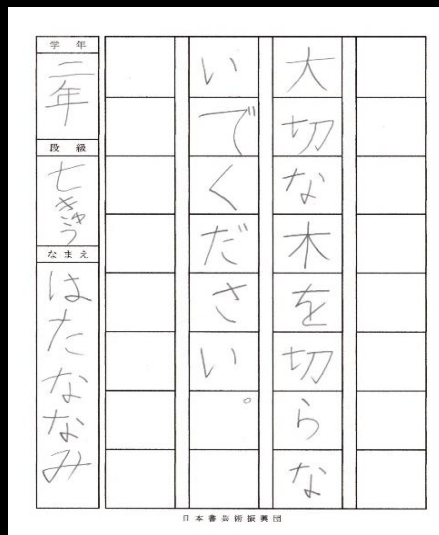 大切な木を切らな
いでください。
学年
二年
段級
七きゅう
なまえ
はたななみ
日本書芸術振興団